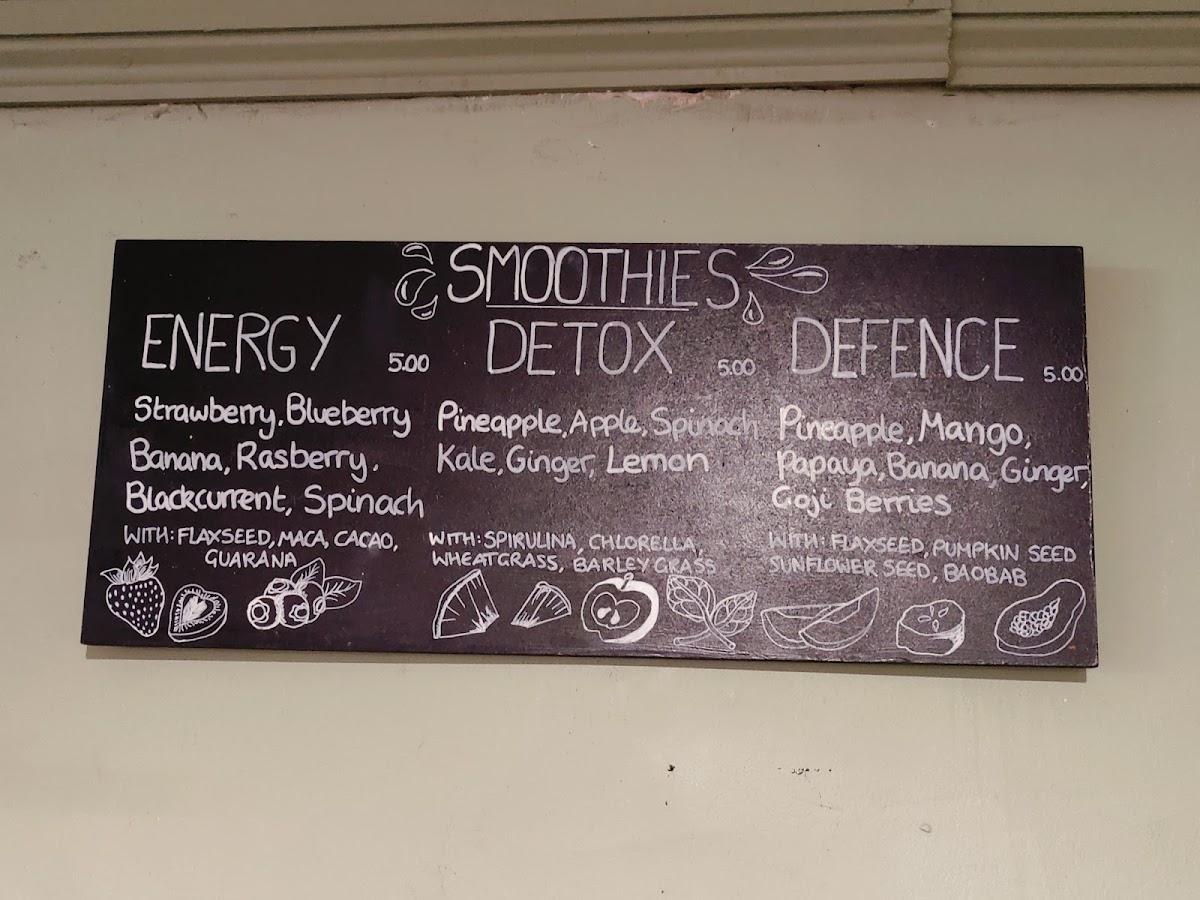 SMOOTHIES
ENERGY 5.00
Strawberry, Blueberry
Banana, Rasberry,
Blackcurrent, Spinach
WITH: FLAXSEED, MACA, CACAO,
GUARANA
DETOX 5.00
Pineapple, Apple, Spinach
Kale, Ginger, Lemon
WITH: SPIRULINA, CHLORELLA,
WHEATGRASS, BARLEY GRASS
DEFENCE 5.00
Pineapple, Mango,
Papaya, Banana, Ginger,
Goji Berries
WITH: FLAXSEED, PUMPKIN SEED
SUNFLOWER SEED, BAOBAB